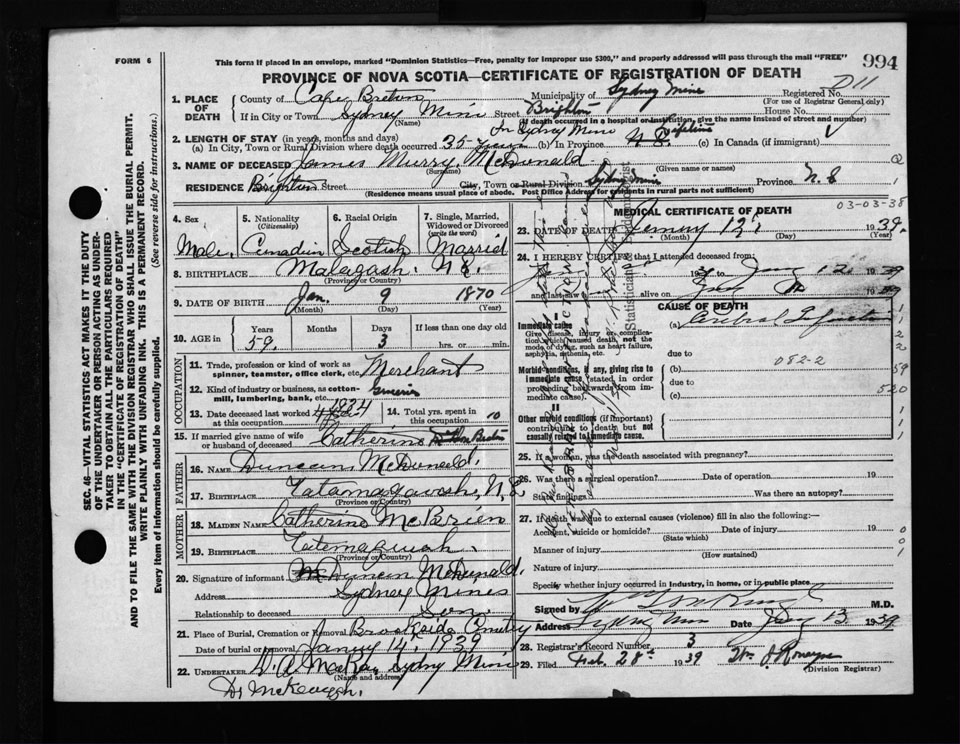 FORM 6
This form if placed in an envelope, marked "Dominion Statistics—Free, penalty for improper use $300," and properly addressed will pass through the mail "FREE"
994
PROVINCE OF NOVA SCOTIA—CERTIFICATE OF REGISTRATION OF DEATH
D11
SEC. 46—VITAL STATISTICS ACT MAKES IT THE DUTY
OF THE UNDERTAKER OR PERSON ACTING AS UNDER-
TAKER TO OBTAIN ALL THE PARTICULARS REQUIRED
IN THE "CERTIFICATE OF REGISTRATION OF DEATH"
AND TO FILE THE SAME WITH THE DIVISION REGISTRAR WHO SHALL ISSUE THE BURIAL PERMIT.
WRITE PLAINLY WITH UNFADING INK. THIS IS A PERMANENT RECORD.
Every item of Information should be carefully supplied. (See reverse side for instructions.)
1. PLACE OF DEATH
County of Cape Breton Municipality of Sydney Mine Registered No.
(For use of Registrar General only)
If in City or Town Sydney Mine Street Brighton House No.
(Name) (If death occurred in a hospital or institution, give the name instead of street and number)
2. LENGTH OF STAY (in years, months and days) In Sydney Mine
(a) In City, Town or Rural Division where death occurred 35 years (b) In Province N.S. lifetime (c) In Canada (if immigrant)
3. NAME OF DECEASED James Murry McDonald
(Surname) (Given name or names)
RESIDENCE Brighton Street City, Town or Rural Division Sydney Mine Province N.S
(Residence means usual place of abode. Post Office Address for residents in rural parts not sufficient)
4. Sex Male
5. Nationality (Citizenship) Canadin
6. Racial Origin Scotish
7. Single, Married, Widowed or Divorced (write the word) Married
8. BIRTHPLACE Malagash. N.S.
(Province or Country)
9. DATE OF BIRTH Jan. 9 1870
(Month) (Day) (Year)
10. AGE in Years 59. Months Days 3 If less than one day old hrs. or min.
OCCUPATION
11. Trade, profession or kind of work as spinner, teamster, office clerk, etc. Merchant
12. Kind of industry or business, as cotton-mill, lumbering, bank, etc.
13. Date deceased last worked at this occupation 1934
14. Total yrs. spent in this occupation 10
15. If married give name of wife or husband of deceased Catherine
FATHER
16. NAME Duncan McDonald.
17. BIRTHPLACE Tatamagouash, N.S
(Province or Country)
MOTHER
18. MAIDEN NAME Catherine McBrien
19. BIRTHPLACE Tatamaguash.
(Province or Country)
20. Signature of informant Duncan McDonald.
Address Sydney Mines
Relationship to deceased Son
21. Place of Burial, Cremation or Removal Brookside Cemetry
Date of burial or removal January 14, 1939
22. UNDERTAKER D. A. McRae, Sydney Mine
(Name and address)
Dr McKeough.
MEDICAL CERTIFICATE OF DEATH
03-03-38
23. DATE OF DEATH 12 1939.
(Month) (Day) (Year)
24. I HEREBY CERTIFY that I attended deceased from:
to Jany 12 1939
and last saw alive on 1939
CAUSE OF DEATH
Immediate cause
Give disease, injury or complication, which caused death, not the mode of dying, such as heart failure, asphyxia, asthenia, etc.
(a)
due to 082-2
Morbid conditions, if any, giving rise to immediate cause (stated in order proceeding backwards from immediate cause).
(b)
due to
(c)
59
520
Other morbid conditions (if important) contributing to death but not causally related to immediate cause.
25. If a woman, was the death associated with pregnancy?
26. Was there a surgical operation? Date of operation 19
State findings Was there an autopsy?
27. If death was due to external causes (violence) fill in also the following:—
Accident, suicide or homicide? Date of injury 19
(State which)
Manner of injury
(How sustained)
Nature of injury
Specify whether injury occurred in Industry, in home, or in public place.
Signed by M.D.
Address Sydney Mine Date Jany 13, 1939
28. Registrar's Record Number 3
29. Filed Feb. 28th 1939
(Division Registrar)